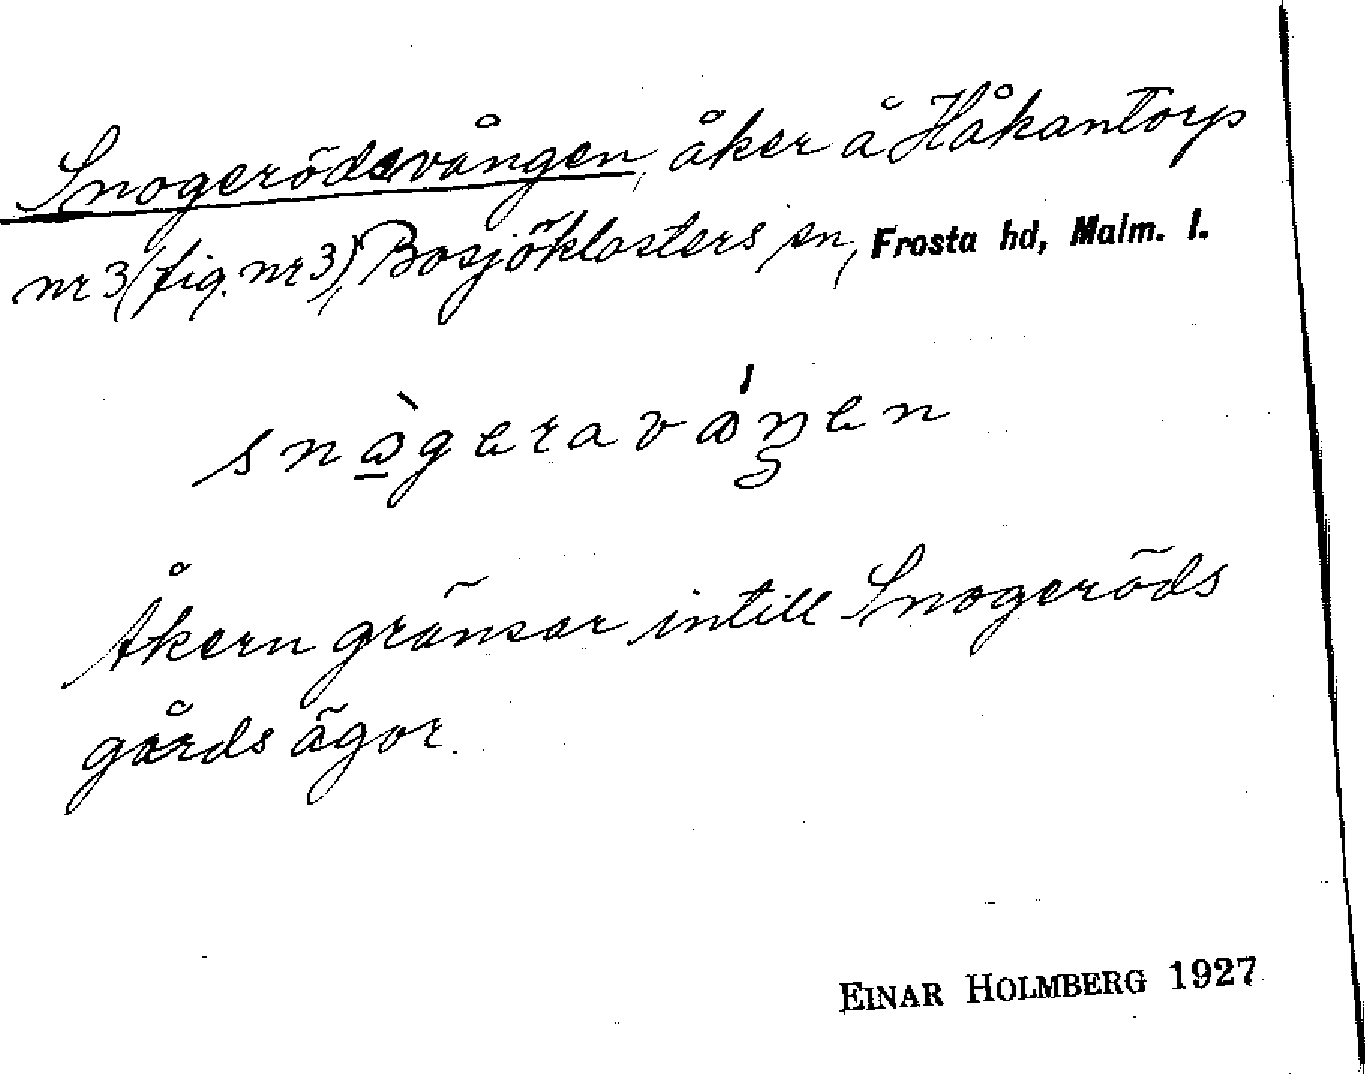 Snogerödavången, åker å Håkantorp
nr 3 (fig. nr 3), Bosjöklosters sn, Frosta hd, Malm. l.
snògeravåŋen
Åkern gränsar intill Snogeröds
gårds ägor.
EINAR HOLMBERG 1927